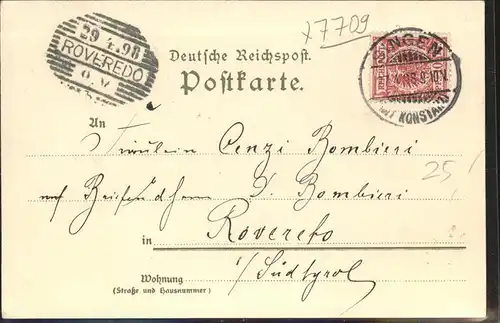 x7709
29.4.98
ROVEREDO
Deutsche Reichspost.
Postkarte.
NGEN
KONSTANZ
An
Fräulein Cenzi Bombieri
25
D. Bombieri
in Rovereto
Wohnung
(Straße und Hausnummer)
i/Südtyrol